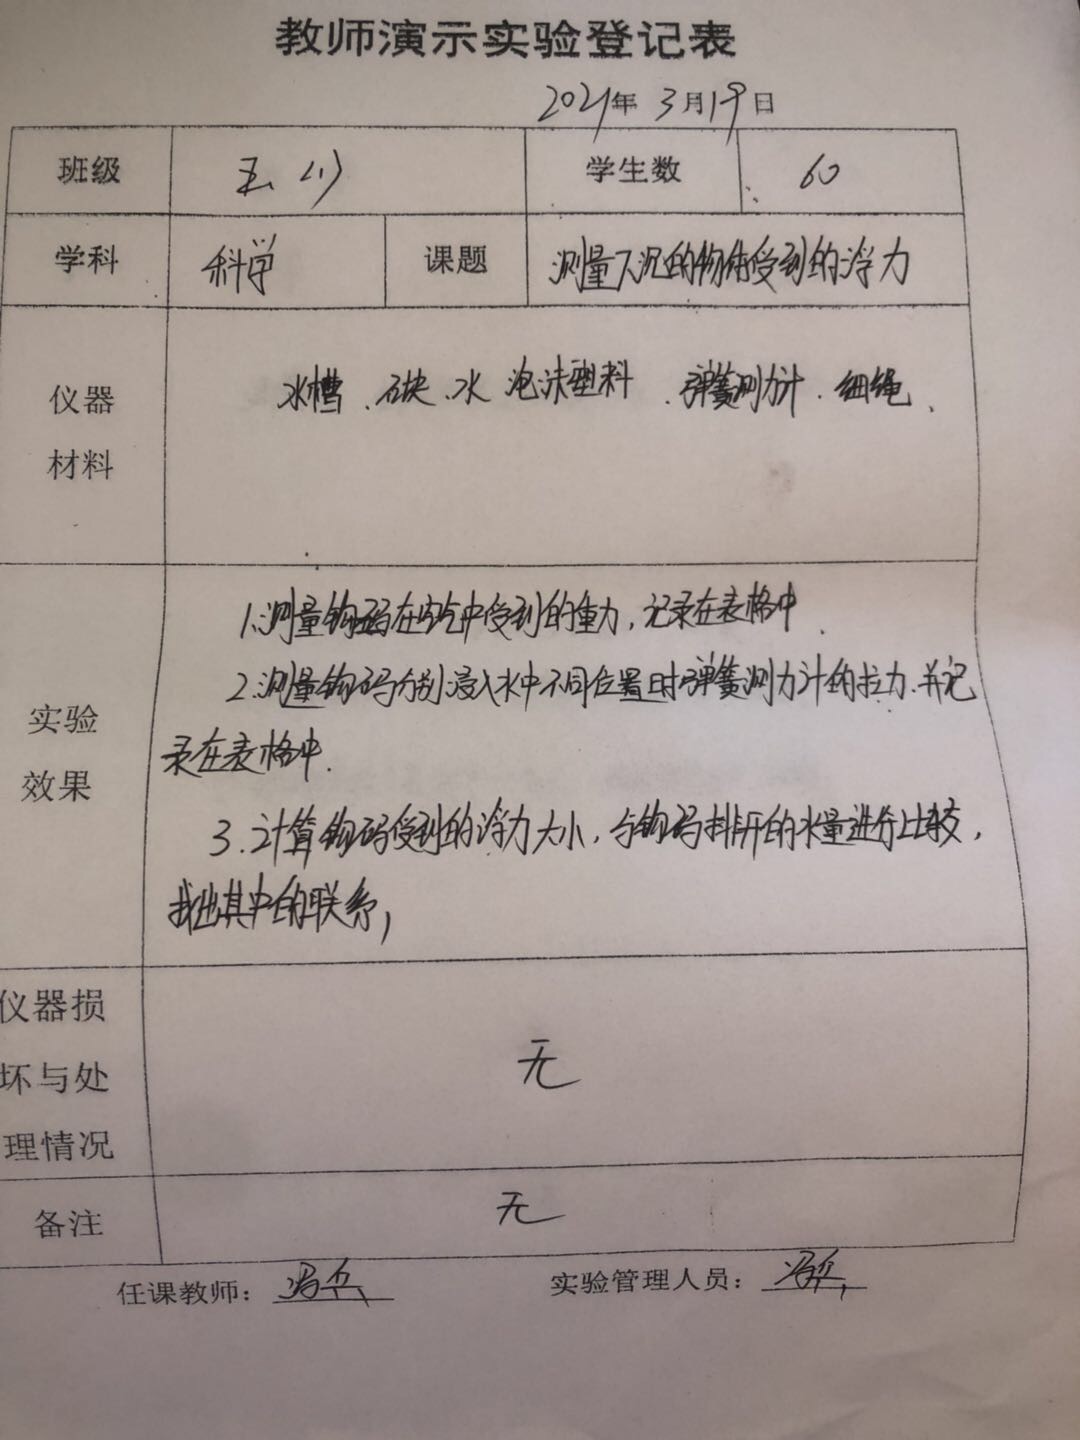 教师演示实验登记表
2021年 3月19日
班级 五（1） 学生数 60
学科 科学 课题 测量下沉的物体受到的浮力
仪器
材料
水槽、砝块、水 泡沫塑料、弹簧测力计、细绳、
实验
效果
1.测量钩码在空气中受到的重力，记录在表格中.
2.测量钩码分别浸入水中不同位置时弹簧测力计的拉力.并记
录在表格中.
3.计算钩码受到的浮力大小，与钩码排开的水量进行比较，
找出其中的联系，
仪器损
坏与处
理情况
无
备注 无
任课教师： 实验管理人员：